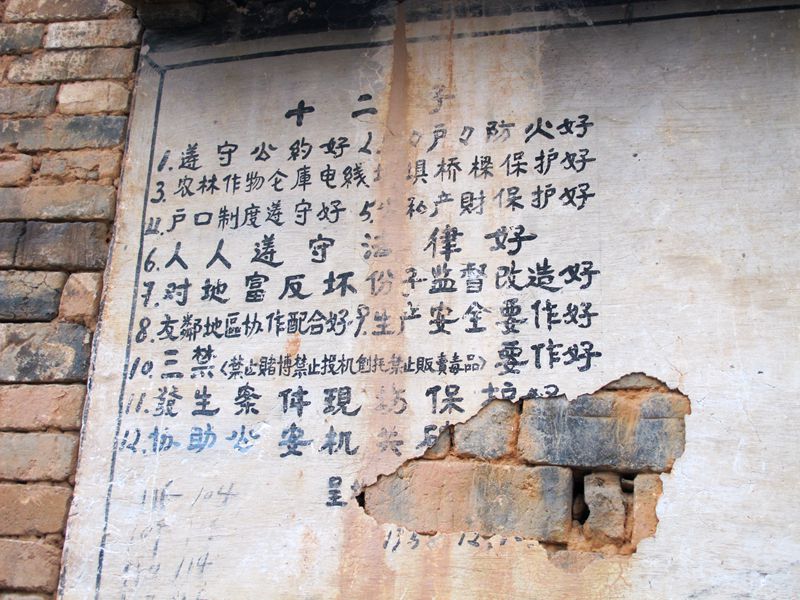 十二子
1.遵守公約好2.户々防火好
3.农林作物仓庫电綫填桥樑保护好
4.户口制度遵守好5.私产財保护好
6.人人遵守法律好
7.对地富反坏份子监督改造好
8.友鄰地區协作配合好9.生产安全要作好
10.三禁(禁止賭博禁止投机創托禁止販賣毒品)要作好
11.發生案件現場保护好
12.协助公安机关破
呈
116 104
114 114